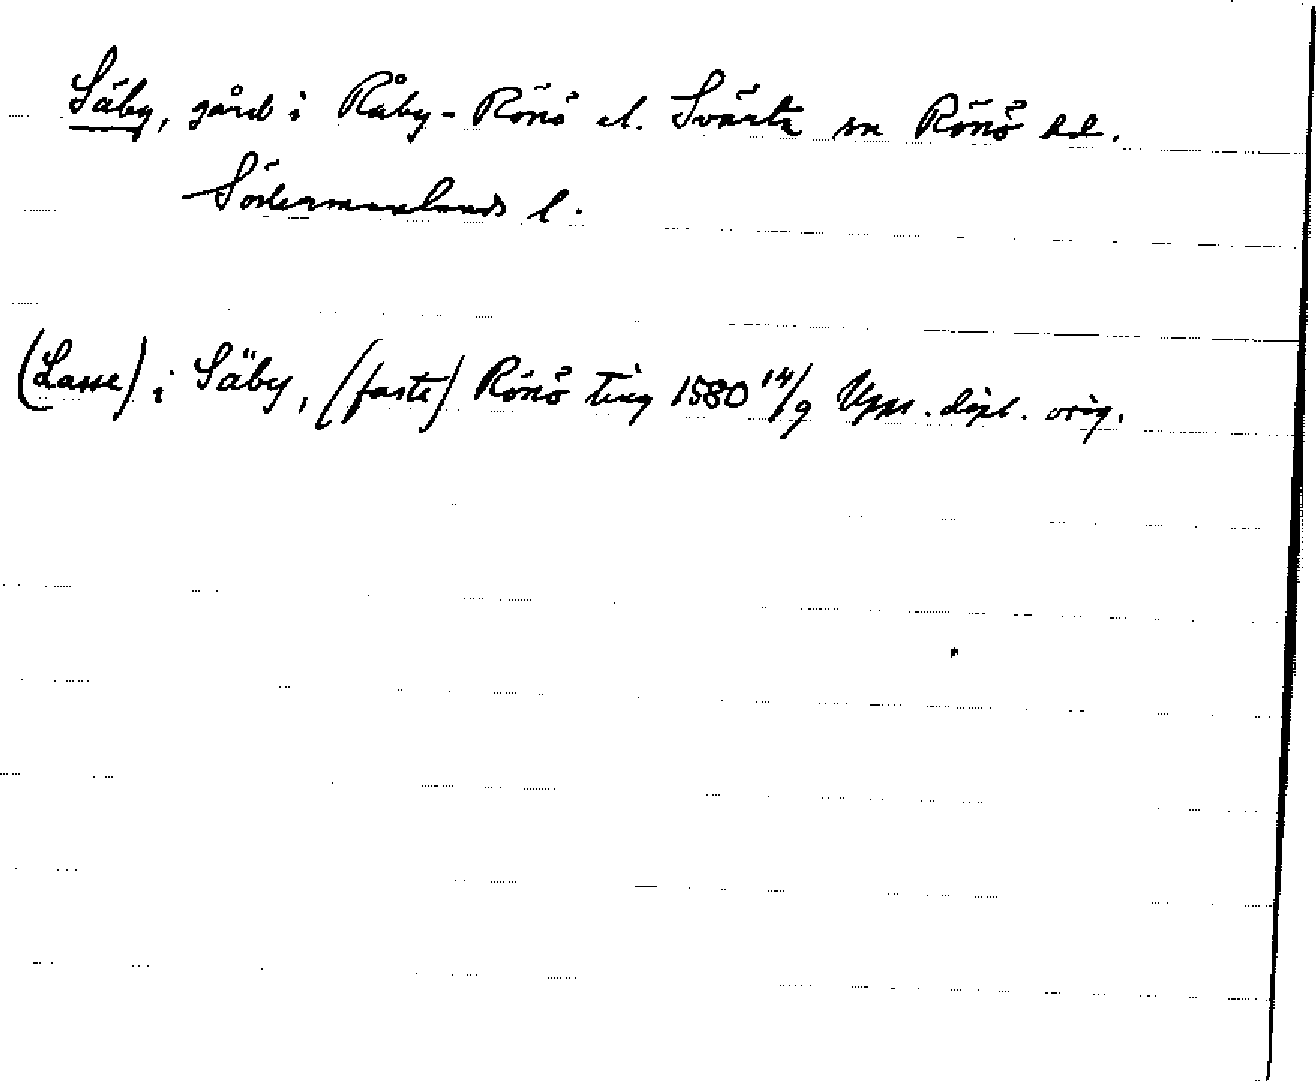 Säby, gård i Råby-Rönö el. Svärta sn Rönö hd.
Södermanlands l.
(Lasse) i Säby, (faste) Rönö ting 1580 14/9 Upps. dipl. orig.